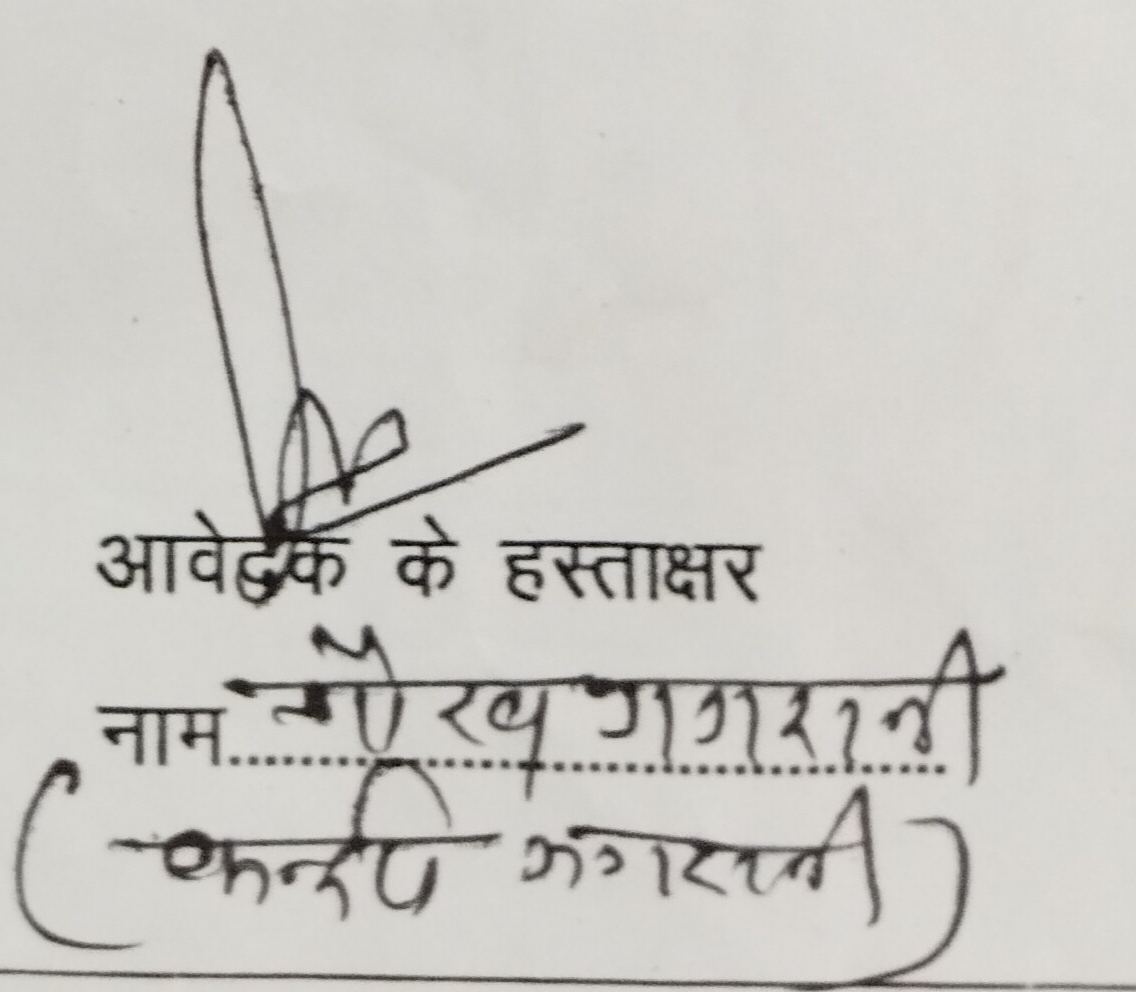 आवेदक के हस्ताक्षर
नाम गौरव गगरानी
(कन्दर्प गगरानी)